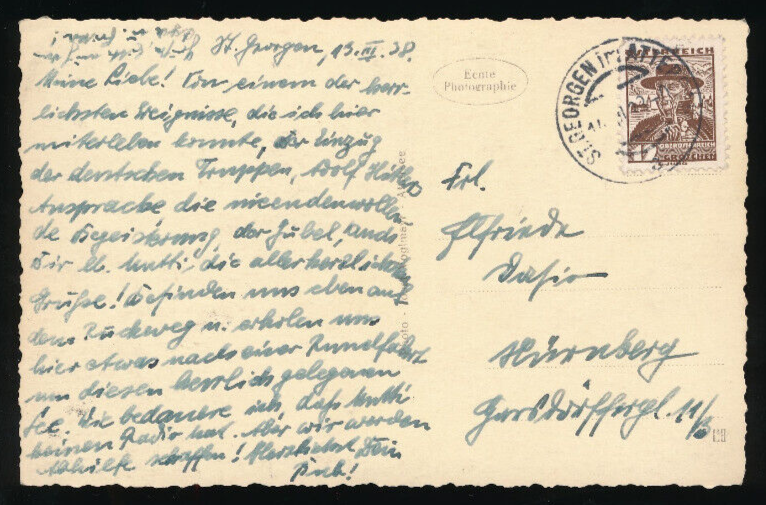 St. Georgen, 13.III.38.
Meine Liebe! Von einem der herr-
lichsten Ereignisse, die ich hier
miterleben konnte, der Einzug
der deutschen Truppen, Adolf Hitlers
Ansprache die nicendenwollen
de Begeisterung, der Jubel,
Dir lb. Mutti, die allerherzlichsten
Grüße! Befinden uns eben auf
dem Rückweg u. erholen uns
hier etwas nach einer Rundfahrt
um diesen herrlich gelegenen
See. Wie bedauere ich, daß Mutti
keinen Radio hat. Aber wir werden
Abhilfe schaffen! Herzlichst Dein
Echte
Photographie
ST. GEORGEN IM ATTER
ÖSTERREICH
OBERÖSTERREICH
GROSCHEN
Frl.
Elfriede
Dasio
Nürnberg
11/3